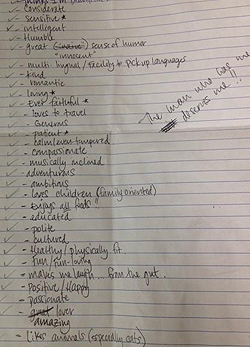 - considerate
- sensitive *
- intelligent
- Humble
- great sense of humor
"innocent"
- multi lingual / facility to pick up languages
- kind
- romantic
- loving *
- Ever faithful *
- loves to travel
- Generous
- patient *
- calm/even tempered
- compassionate
- musically inclined
- adventurous
- ambitious
- loves children (family oriented)
- Enjoys all foods
- educated
- polite
- cultured
- Healthy/physically fit
- fun/fun-loving
- makes me laugh ... from the gut.
- Positive/Happy
- passionate
- great lover
amazing
- Likes animals (especially cats)
The man who was me
deserves me!!